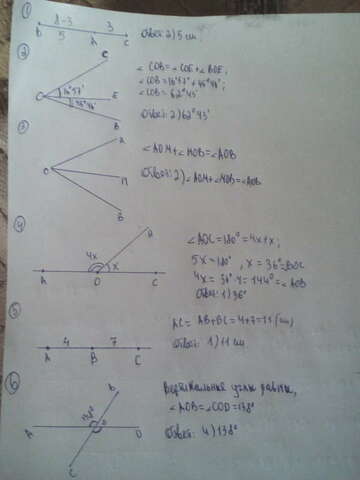 1
8-3 3
B 5 A C Ответ: 2) 5 см
2
C
∠COB = ∠COE + ∠BOE;
O 16°57' E
∠COB = 16°57' + 45°46';
∠COB = 62°43'
B
Ответ: 2) 62°43'
3
A
O
∠AOM + ∠MOB = ∠AOB
M
Ответ: 2) ∠AOM + ∠MOB = ∠AOB
B
4
B
4x x
∠AOC = 180° = 4x + x;
A O C
5x = 180°, x = 36° = BOC
4x = 36°·4 = 144° = ∠AOB
Ответ: 1) 36°
5
AC = AB + BC = 4 + 7 = 11 (см)
4 7
A B C
Ответ: 1) 11 см
6
B
Вертикальные углы равны,
138°
∠AOB = ∠COD = 138°
A O D
Ответ: 4) 138°
C